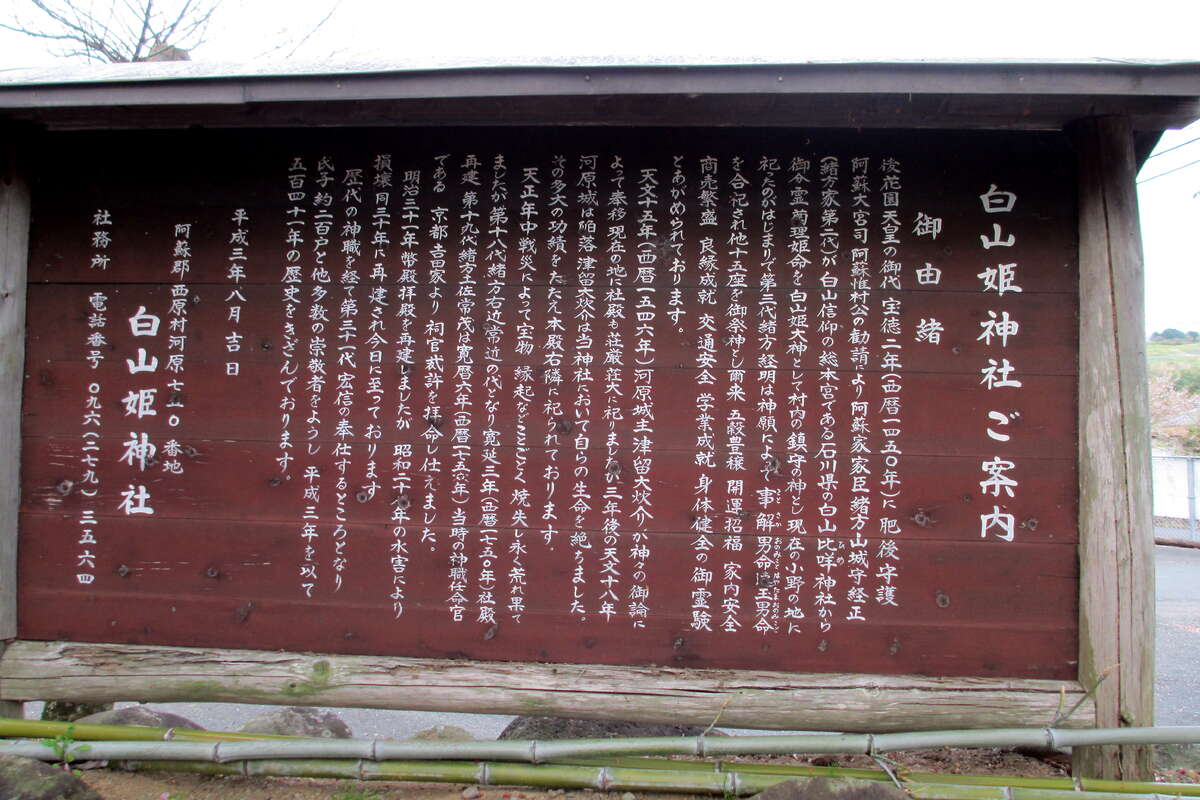 白山姫神社ご案内
御由緒
後花園天皇の御代 宝徳二年(西暦一四五〇年)に 肥後守護
阿蘇大宮司 阿蘇惟村公の勧請により 阿蘇家家臣緒方山城守経正
(緒方家第二代)が 白山信仰の総本宮である石川県の白山比咩神社から
御分霊 菊理姫命を 白山姫大神として村内の鎮守の神とし 現在小野の地に
祀たのがはじまりで第三代緒方経明は神願によって 事解男命 速玉男命
を合へ祀され他十五座を御祭神とし爾来 五穀豊穣 開運招福 家内安全
商売繁盛 良縁成就 交通安全 学業成就 身体健全の御霊験
とあがめられております。
天文十五年(西暦一五四六年)河原城主津留大炊介が神々の御諭に
よって奉移 現在の地に社殿も荘厳荘大に祀りましたが三年後の天文十八年
河原城は陥落 津留大炊介は当神社において自らの生命を絶ちました。
その多大の功績をたたえ本殿右隣に祀られております。
天正年中戦災によって宝物 縁起などことごとく焼失し永く荒れ果て
ましたが 第十八代緒方右近常近の代となり 寛延三年(西暦一七五〇年)社殿
再建 第十九代緒方土佐常茂は寛暦六年(西暦一七五六年)当時の神職任命官
である 京都吉田家より 祠官裁許を拝命し仕えました。
明治三十一年幣殿拝殿を再建しましたが 昭和二十八年の水害により
損壊 同三十年に再建され今日に至っております
歴代の神職を経て第三十一代 宏信の奉仕するところとなり
氏子 約二百戸と他多数の崇敬者をようし 平成三年を以て
五百四十一年の歴史をきざんでおります。
平成三年八月吉日
阿蘇郡西原村河原七五〇番地
白山姫神社
社務所 電話番号 〇九六(二七九)三五六四